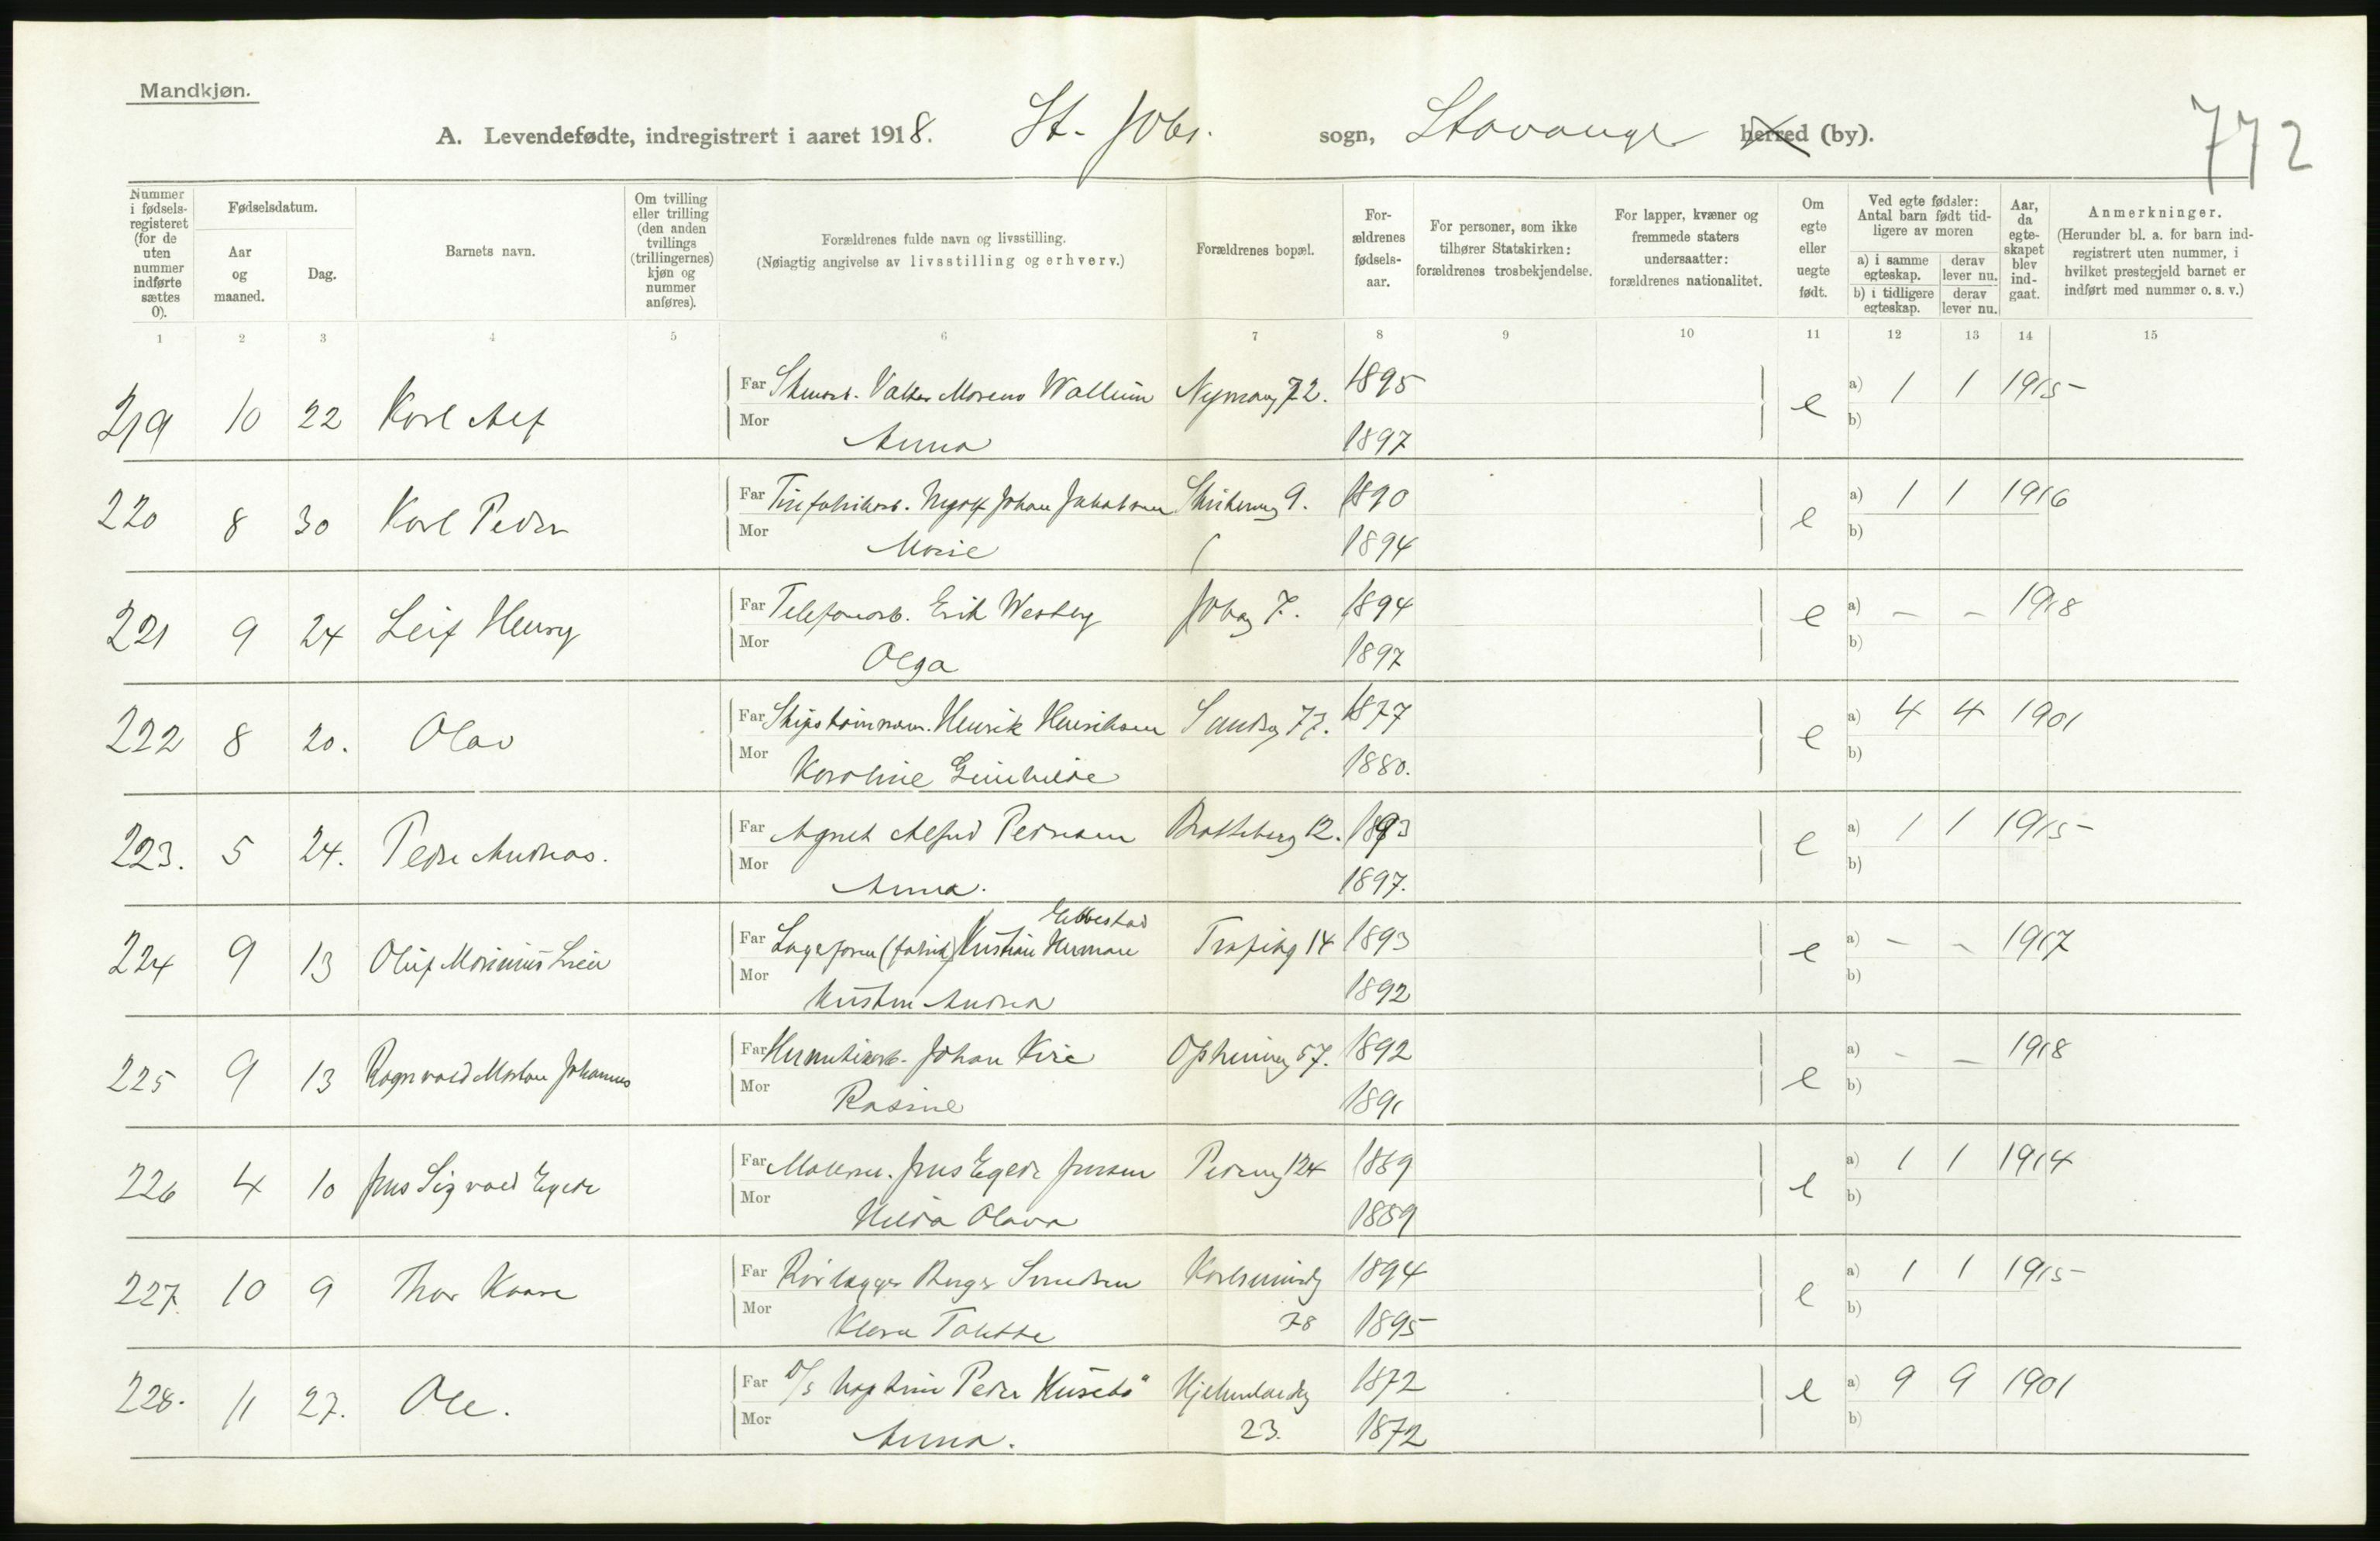 Mandkjøn.
772
A. Levendefødte, indregistrert i aaret 1918. St. Johs. sogn, Stavanger herred (by).
Nummer i fødsels-registeret (for de uten nummer indførte sættes 0).
Fødselsdatum.
Aar og maaned.
Dag.
Barnets navn.
Om tvilling eller trilling (den anden tvillings (trillingernes) kjøn og nummer anføres).
Forældrenes fulde navn og livsstilling.
(Nøiagtig angivelse av livsstilling og erhverv.)
Forældrenes bopæl.
For-ældrenes fødsels-aar.
For personer, som ikke tilhører Statskirken: forældrenes trosbekjendelse.
For lapper, kvæner og fremmede staters undersaatter: forældrenes nationalitet.
Om egte eller uegte født.
Ved egte fødsler: Antal barn født tid-ligere av moren
a) i samme egteskap.
derav lever nu.
b) i tidligere egteskap.
derav lever nu.
Aar, da egte-skapet blev ind-gaat.
Anmerkninger.
(Herunder bl. a. for barn ind-registrert uten nummer, i hvilket prestegjeld barnet er indført med nummer o. s. v.)
1 2 3 4 5 6 7 8 9 10 11 12 13 14 15
219 10 22 Karl Alf Far Valter Moreno Wallum 72. 1895 e a) 1 1 1915
Mor Anna 1897 b)
220 8 30 Karl Peder Far Johan Jakobsen 9. 1890 e a) 1 1 1916
Mor Marie 1894 b)
221 9 24 Leif Henry Far Telefonarb. Erik Westby 7. 1894 e a) - - 1918
Mor Olga 1897 b)
222 8 20. Olav Far Skipstømmerm. Henrik Henriksen Sandsg 77. 1877 e a) 4 4 1901
Mor Karoline Gunhilde 1880. b)
223. 5 24. Peder Andreas. Far Agent Alfred Pedersen 12. 1893 e a) 1 1 1915
Mor Anna. 1897. b)
Ebbestad
224 9 13 Oluf Marinius Far Lagerform (fabrik) Kristian Herman 14 1893 e a) - - 1917
Mor Kristine Andrea 1892 b)
225 9 13 Ragnvald Johannes Far Hermetikarb. Johan 57. 1892 e a) - - 1918
Mor Rasine 1891 b)
226 4 10 Jens Sigvald Egede Far Malersv. Jens Egede Jensen Pedersg 124 1889 e a) 1 1 1914
Mor Hilda Olava 1889 b)
227. 10 9 Thor Kaare Far Rørlægger Birger Karlsmindeg 1894 e a) 1 1 1915
Mor Klara 78 1895 b)
228. 11 27. Ole. Far D/s kaptein Peder Husebø Hjelmelandsg 1872 e a) 9 9 1901
Mor Anna. 23. 1872 b)